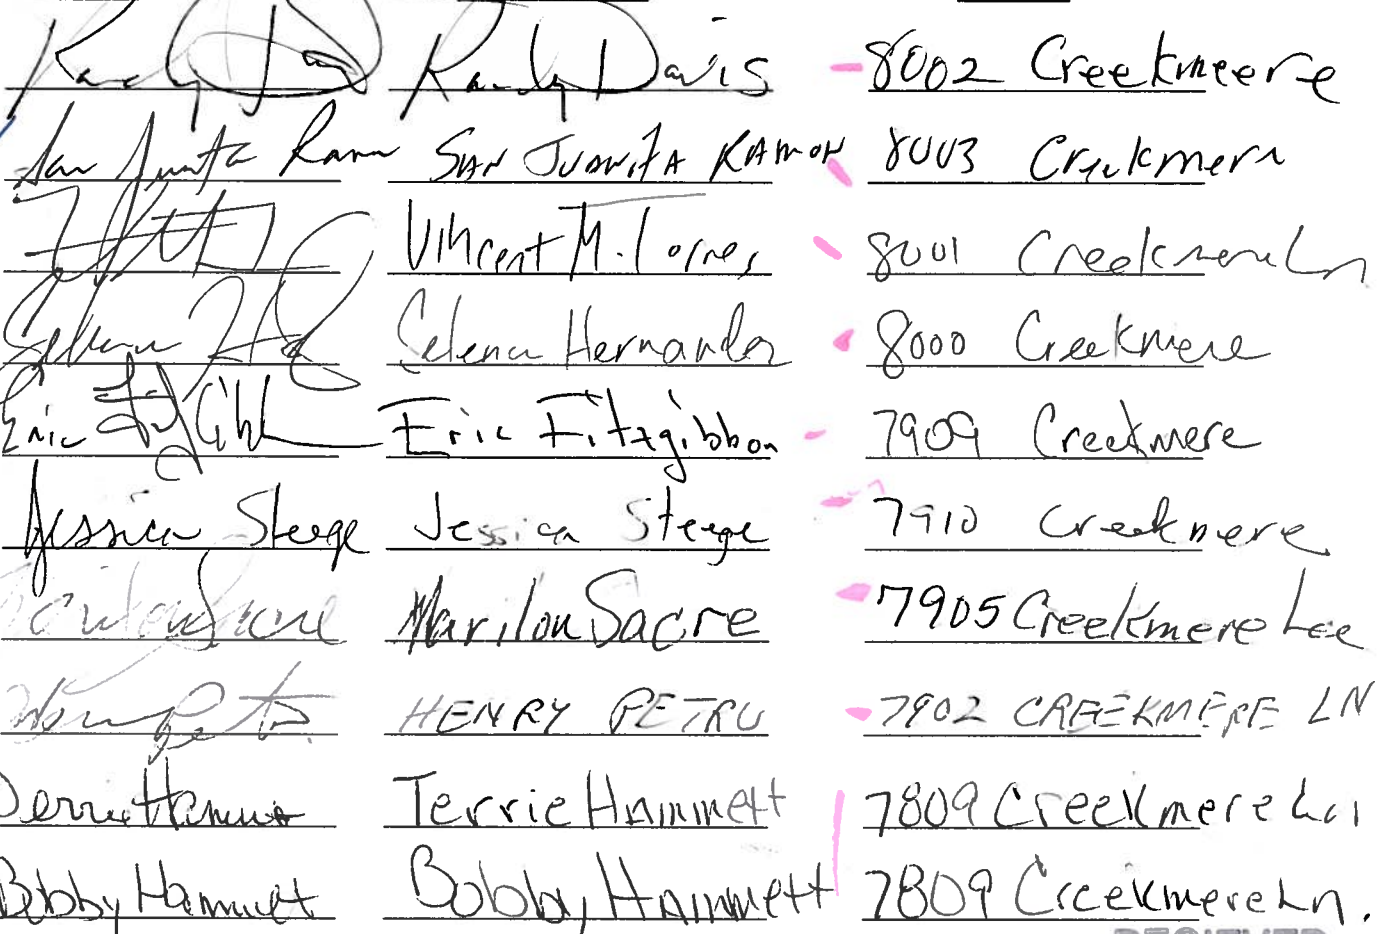 Randy Davis Randy Davis 8002 Creekmeere
San Juanita Ramon SAN JUANITA RAMON 8003 Creekmere
Vincent M. Torres 8001 Creekmere Ln
Selena Selena Hernandez 8000 Creekmere
Eric Fitzgibbon Eric Fitzgibbon 7909 Creekmere
Jessica Steege Jessica Steege 7910 Creekmere
Marilou Sacre Marilou Sacre 7905 Creekmere
HENRY PETRU 7902 CREEKMERE LN
Terrie Hammett Terrie Hammett 7809 Creekmere Ln
Bobby Hammett Bobby Hammett 7809 Creekmere Ln.